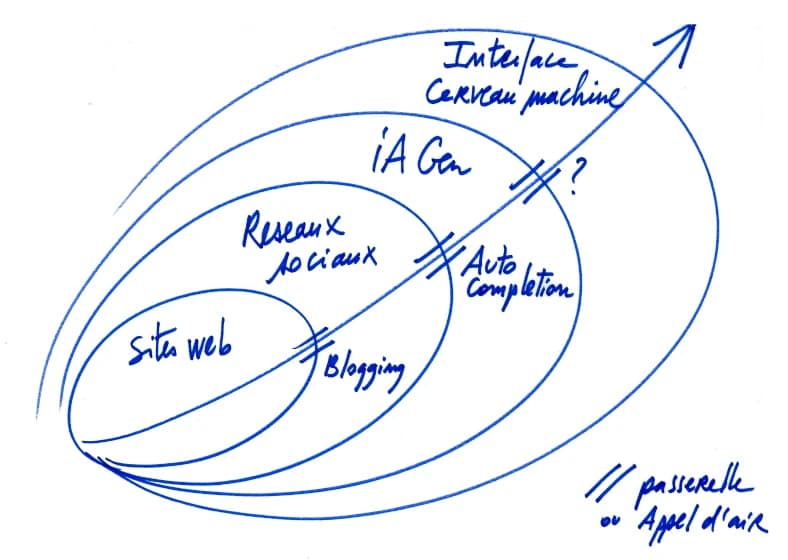 Interface
Cerveau machine
iA Gen
?
Reseaux
sociaux
Auto
Completion
Sites web
Blogging
// passerelle
ou Appel d'air